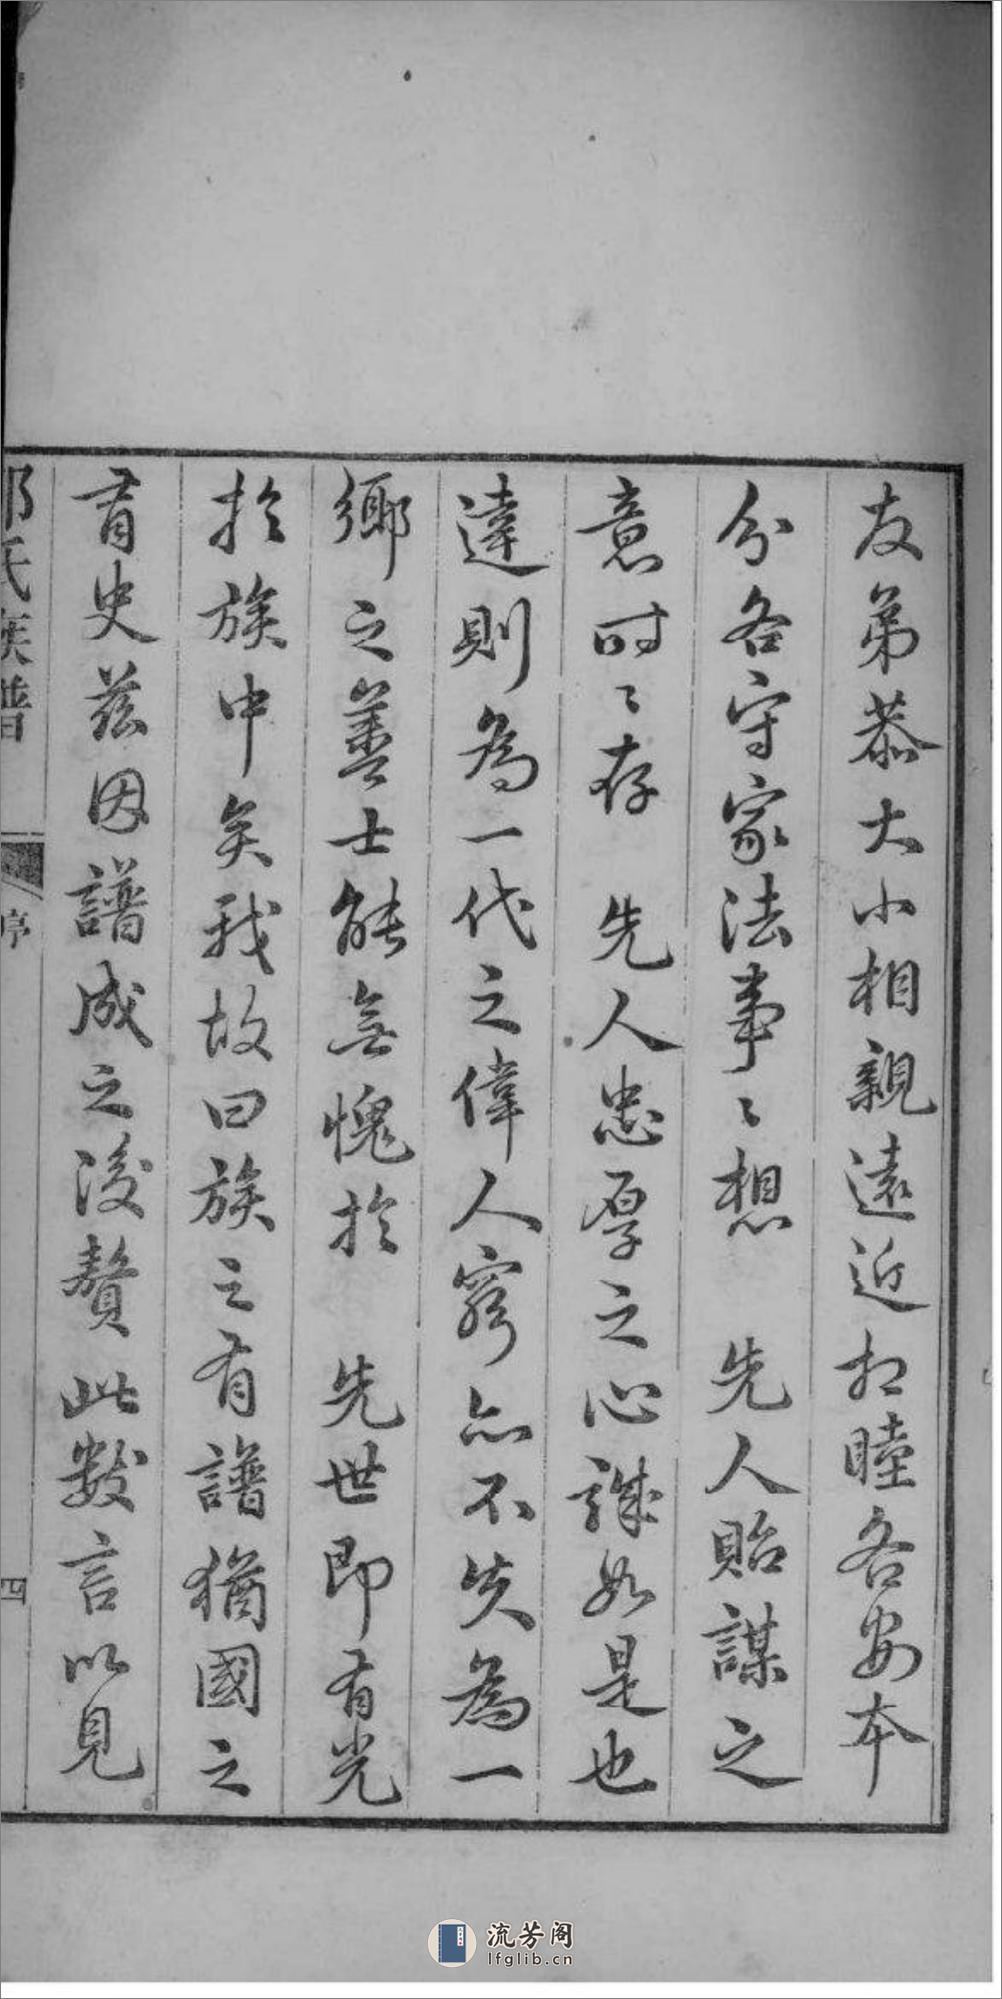 友弟恭大小相親遠近相睦各安本
分各守家法事〻想　先人貽謀之
意時〻存　先人忠厚之心誠如是也
達則為一代之偉人窮亦不失為一
鄉之善士能無愧於　先世即有光
於族中矣我故曰族之有譜猶國之
有史茲因譜成之後贅此數言以見
氏族譜
序
四
流芳阁
lfglib.cn